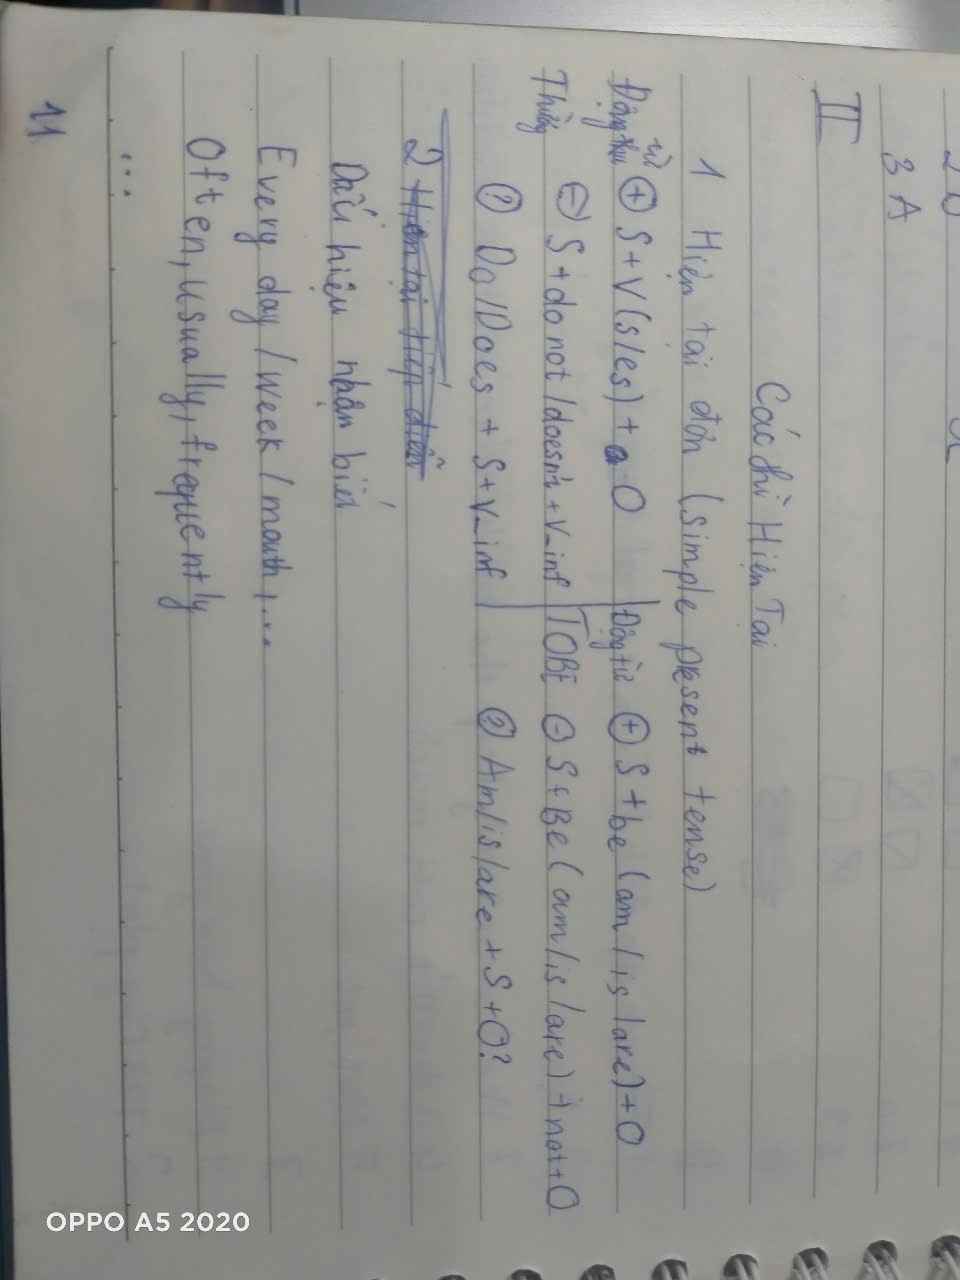 3 A
II
Các thì Hiện Tại
1 Hiện tại đơn (simple present tense)
Động từ ⊕ S + V(s/es) + O | Động từ ⊕ S + be (am / is / are) + O
Thường ⊖ S + do not / doesn't + V_inf | TOBE ⊖ S + Be ( am / is / are) + not + O
? Do / Does + S + V_inf | ? Am / is / are + S + O?
2 Hiện tại tiếp diễn
Dấu hiệu nhận biết
Every day / week / month , ...
Often, usually, frequently
...
11
OPPO A5 2020